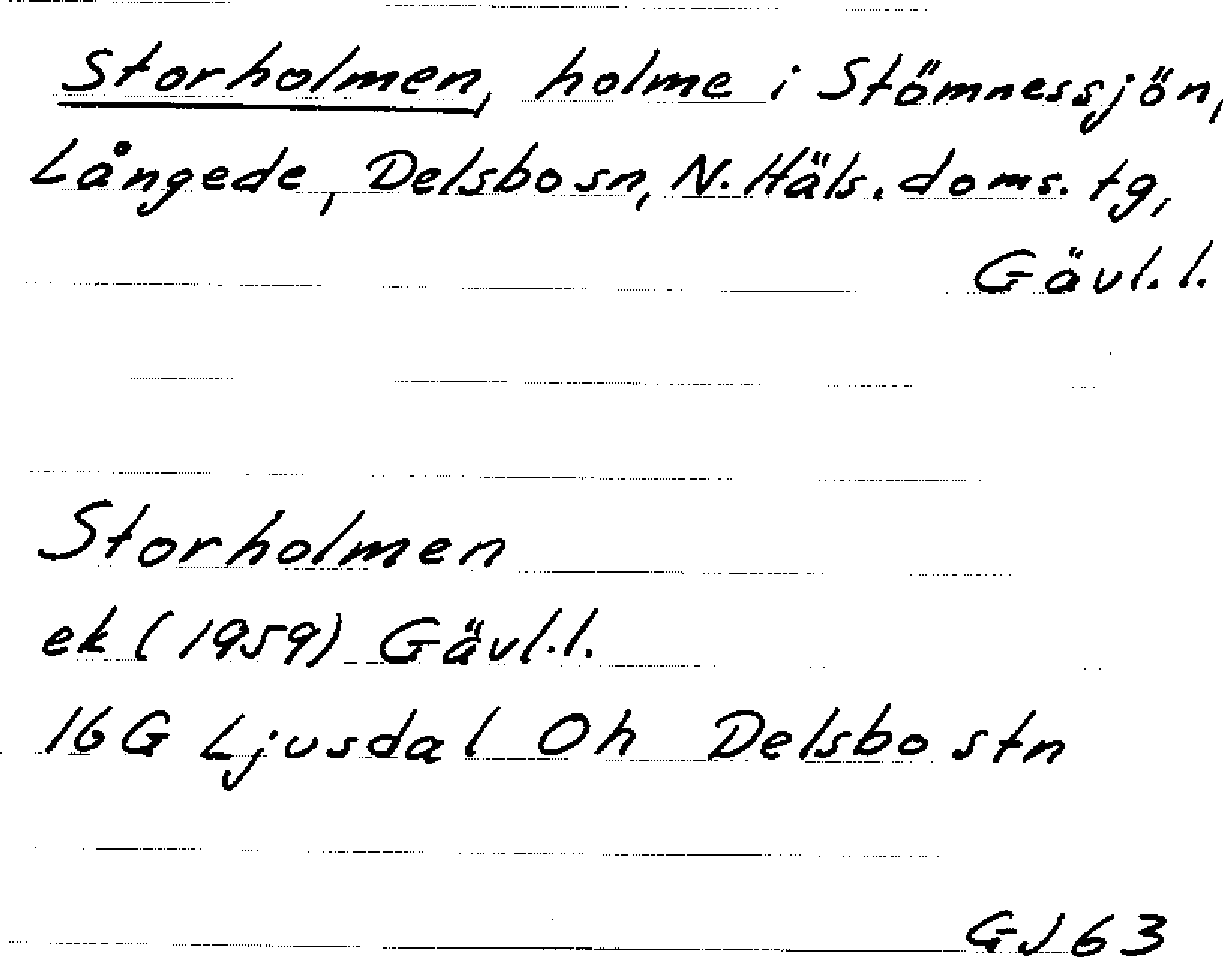 Storholmen, holme i Stömnessjön,
Långede, Delsbo sn, N. Häls. doms. tg,
Gävl. l.
Storholmen
ek (1959) Gävl. l.
16 G Ljusdal Oh Delsbo stn
GJ 63